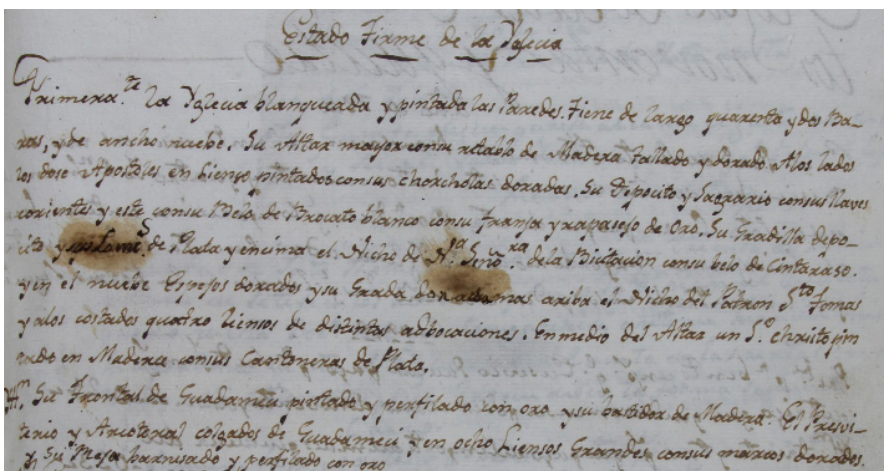 Estado Firme de la Yglecia
Primera.te la Yglecia blanqueada y pintada las Paredes. Tiene de largo quarenta y dos Ba-
ras, y de ancho nuebe. Su Altar mayor con su retablo de Madera tallado y dorado. Alos lados
los dose Apostoles en Lienso pintados con sus chorcholas doradas. Su Depocito y Sagrario con sus llaves
corientes y este con su Belo de Brocato blanco con su franja y rapasejo de Oro. Su Gradilla depo-
cito y sus de Plata y encima el Nicho de N.a Seño.ra de la Bicitacion con su belo de Cintaraso.
y en el nuebe Espejos dorados y su Grada mas ariba el Nicho del Patron S.to Tomas
y alos costados quatro liensos de distintas adbocaciones. En medio del Altar un S.o Christo pin
tado en Madera con sus Cantoneras de Plata.
Su Frontal de Guadameci pintado y perfilado con oro y su bastidor de Madera. El Presvi-
terio y Arcotoral colgados de Guadameci y en ocho Liensos Grandes con sus marcos dorados.
y Su Mesa barnisado y perfilado con oro